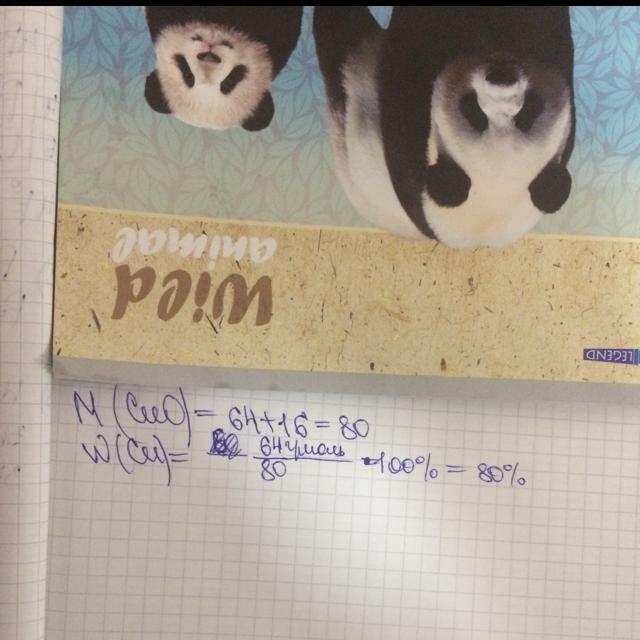 Wild
animal
LEGEND
M(CuO) = 64+16 = 80
W(Cu) = 64г/моль / 80 • 100% = 80%